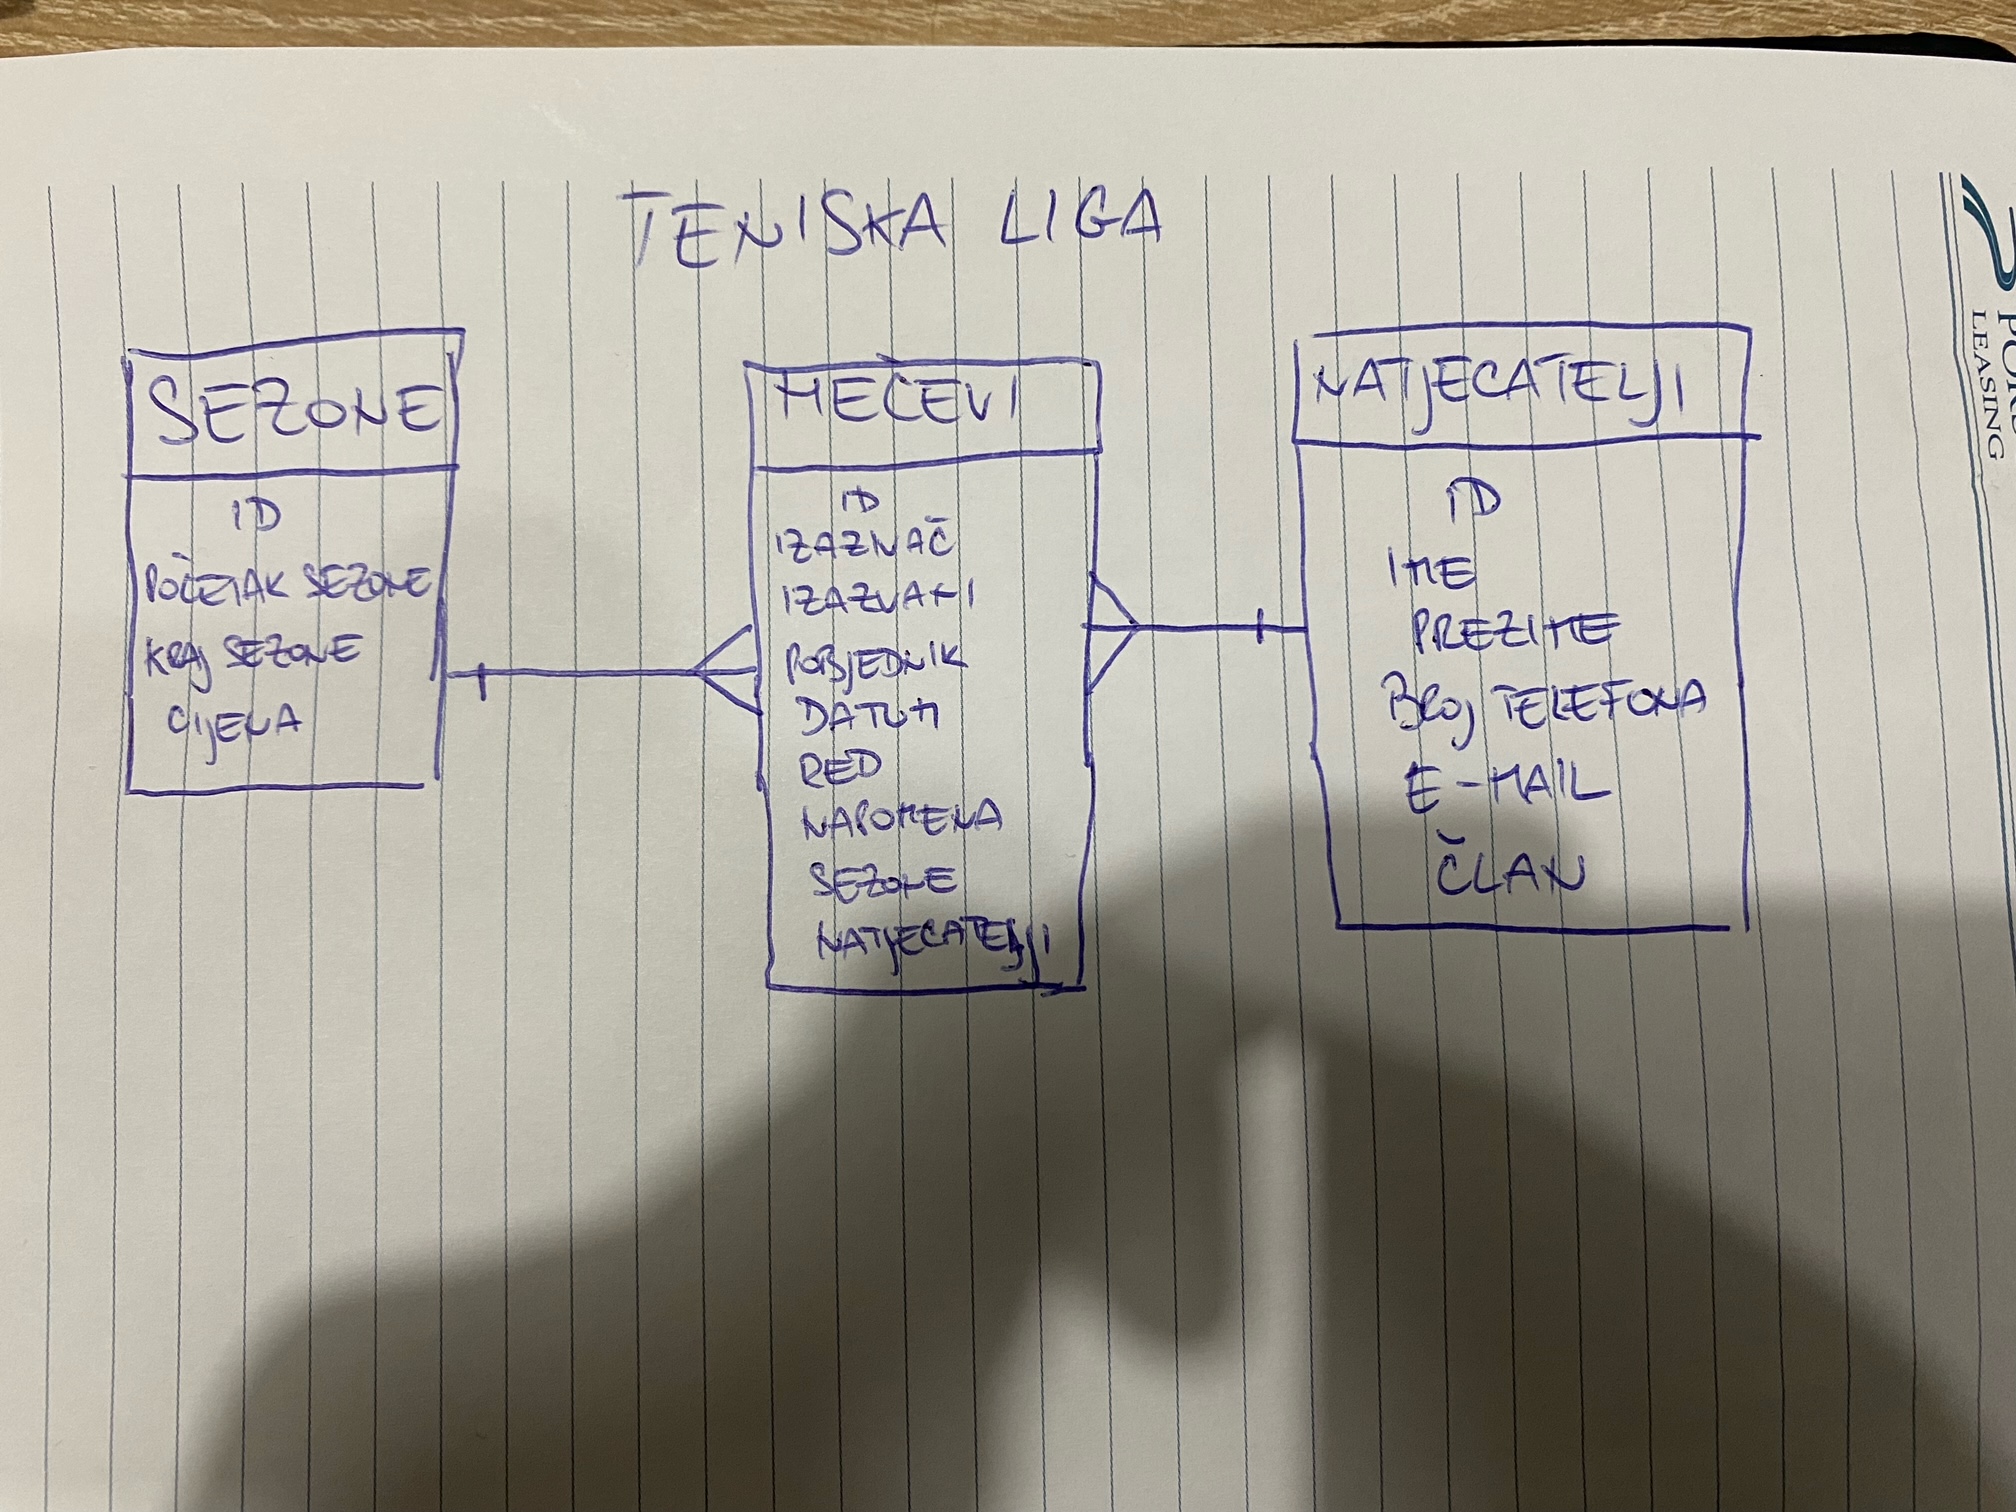 TENISKA LIGA
SEZONE
ID
POČETAK SEZONE
KRAJ SEZONE
CIJENA
MEČEVI
ID
IZAZIVAČ
IZAZVANI
POBJEDNIK
DATUM
RED
NAPOMENA
SEZONE
NATJECATELJI
NATJECATELJI
ID
IME
PREZIME
BROJ TELEFONA
E-MAIL
ČLAN
LEASING